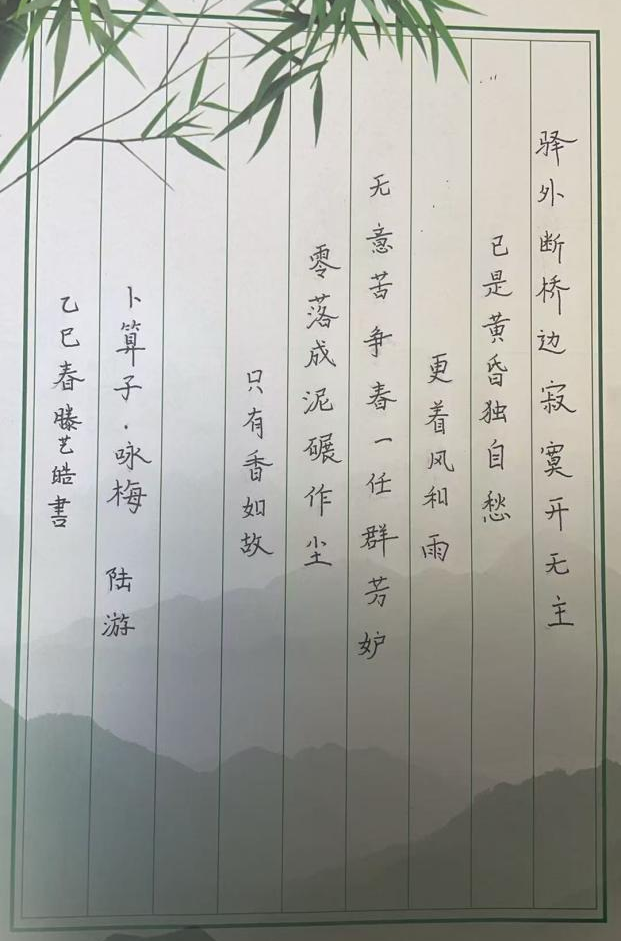 驿外断桥边寂寞开无主
已是黄昏独自愁
更着风和雨
无意苦争春一任群芳妒
零落成泥碾作尘
只有香如故
卜算子·咏梅 陆游
乙巳春滕艺皓書